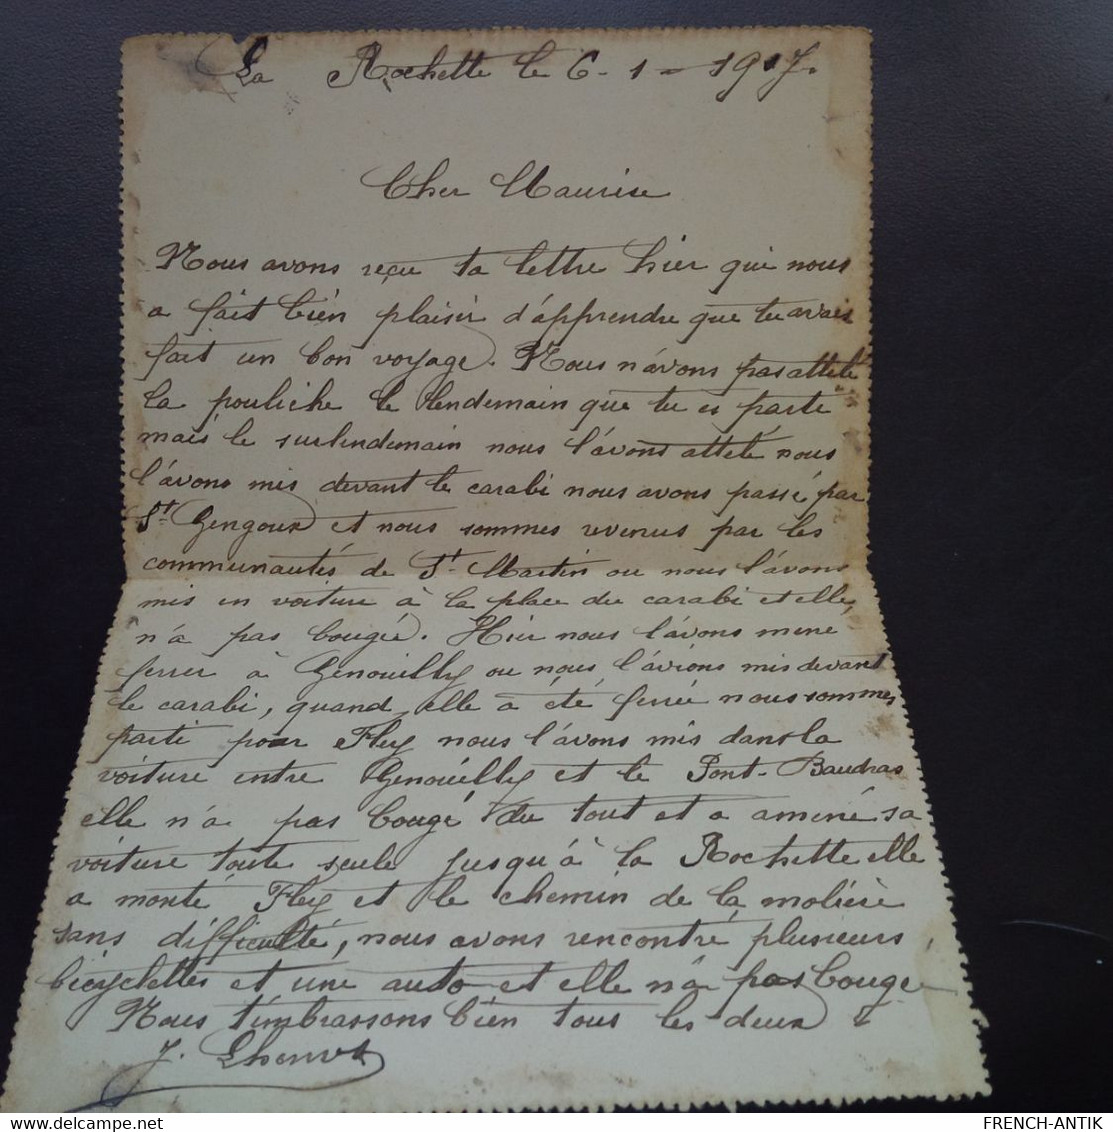 La Rochette le 6-1-1917.
Cher Maurice
Nous avons reçu ta lettre hier qui nous
a fait bien plaisir d'apprendre que tu avais
fait un bon voyage. Nous n'avons pas attelé
la pouliche le lendemain que tu es parti
mais le surlendemain nous l'avons attelé nous
l'avons mis devant le carabi nous avons passé par
St Gengoux et nous sommes revenus par les
communautés de St Martin ou nous l'avons
mis en voiture à la place du carabi et elle
n'a pas bougée. Hier nous l'avons mené
ferrer à Genouilly ou nous l'avions mis devant
le carabi, quand elle à été ferrée nous sommes
parti pour Fley nous l'avons mis dans la
voiture entre Genouilly et le Pont-Baudras
elle n'a pas bougé du tout et a amené sa
voiture toute seule jusqu'à la Rochette elle
a monté Fley et le chemin de la molière
sans difficulté, nous avons rencontré plusieurs
bicyclettes et une auto et elle n'a pas bougé
Nous t'imbrassons bien tous les deux
J.
FRENCH-ANTIK